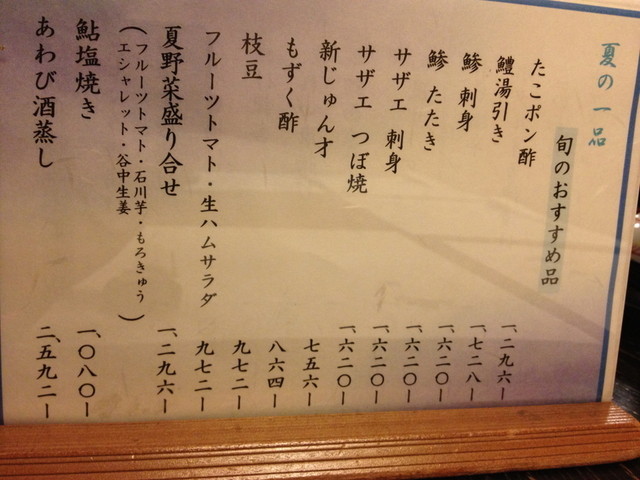 夏の一品
旬のおすすめ品
たこポン酢 一、二九六ー
鱧湯引き 一、七二八ー
鯵 刺身 一、六二〇ー
鯵 たたき 一、六二〇ー
サザエ 刺身 一、六二〇ー
サザエ つぼ焼 一、六二〇ー
新じゅん才 七五六ー
もずく酢 八六四ー
枝豆 九七二ー
フルーツトマト・生ハムサラダ 九七二ー
夏野菜盛り合せ 一、二九六ー
(フルーツトマト・石川芋・もろきゅう
エシャレット・谷中生姜)
鮎塩焼き 一、〇八〇ー
あわび酒蒸し 二、五九二ー